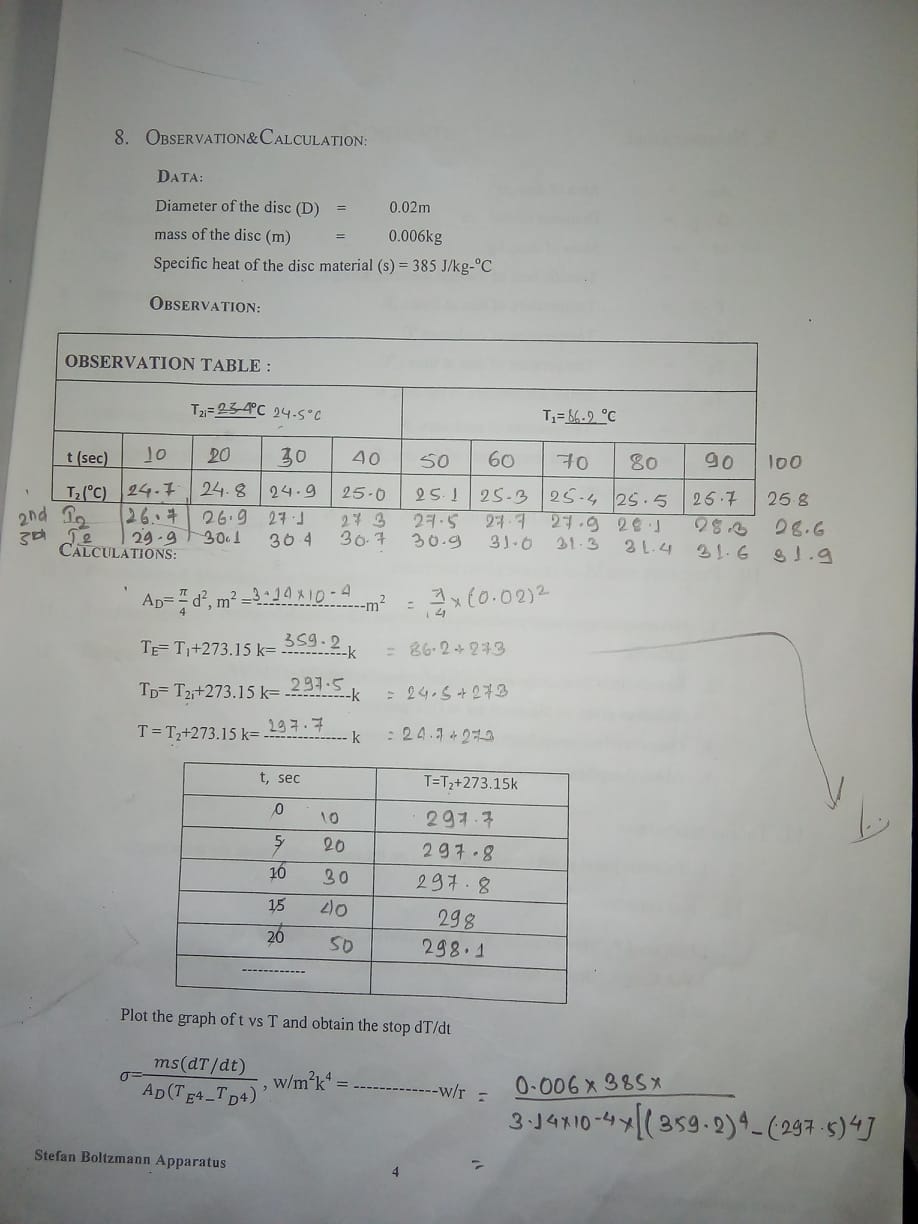 8. OBSERVATION&CALCULATION:
DATA:
Diameter of the disc (D) = 0.02m
mass of the disc (m) = 0.006kg
Specific heat of the disc material (s) = 385 J/kg-⁰C
OBSERVATION:
OBSERVATION TABLE :
T₂ᵢ= 23.4⁰C 24.5°C T₁= 86.2 ⁰C
t (sec) 10 20 30 40 50 60 70 80 90 100
T₂(⁰C) 24.7 24.8 24.9 25.0 25.1 25.3 25.4 25.5 25.7 25.8
2nd T₂ 26.7 26.9 27.1 27.3 27.5 27.7 27.9 28.1 28.3 28.6
3rd T₂ 29.9 30.1 30.4 30.7 30.9 31.0 31.3 31.4 31.6 31.9
CALCULATIONS:
A_D= π/4 d², m² = 3.14×10-4 m² = π/4 × (0.02)²
T_E= T₁+273.15 k= 359.2 k = 86.2+273
T_D= T₂ᵢ+273.15 k= 297.5 k = 24.5+273
T = T₂+273.15 k= 297.7 k = 24.7+273
t, sec T=T₂+273.15k
0 10 297.7
5 20 297.8
10 30 297.8
15 40 298
20 50 298.1
------------
Plot the graph of t vs T and obtain the stop dT/dt
σ= ms(dT/dt) / A_D(T_E4_T_D4) , w/m²k⁴ = -------------w/r = 0.006×385× / 3.14×10-4×[(359.2)4-(297.5)4]
=
Stefan Boltzmann Apparatus
4